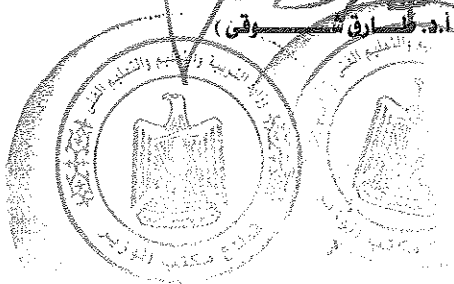 أ.د. طـــارق شـــــــــوقى )
وزارة التربية والتعليم والتعليم الفنى
مكتب الوزير